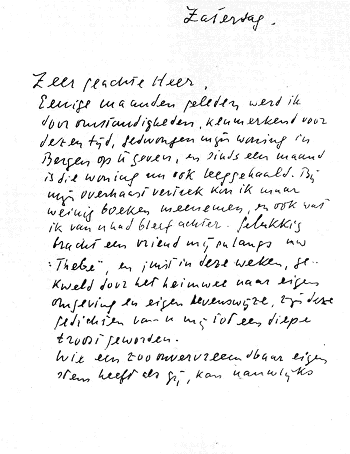 Zaterdag.
Zeer geachte Heer,
Eenige maanden geleden werd ik
door omstandigheden, kenmerkend voor
dezen tijd, gedwongen mijn woning in
Bergen op te geven, en sinds een maand
is die woning nu ook leeggehaald. Bij
mijn overhaast vertrek kon ik maar
weinig boeken meenemen, en ook wat
ik van u had bleef achter. Gelukkig
bracht een vriend mij onlangs uw
"Thebe", en juist in deze weken, ge-
kweld door het heimwee naar eigen
omgeving en eigen levenswijze, zijn deze
gedichten van u mij tot een diepe
troost geworden.
Wie een zoo onvervreemdbaar eigen
stem heeft als gij, kan nauwlijks